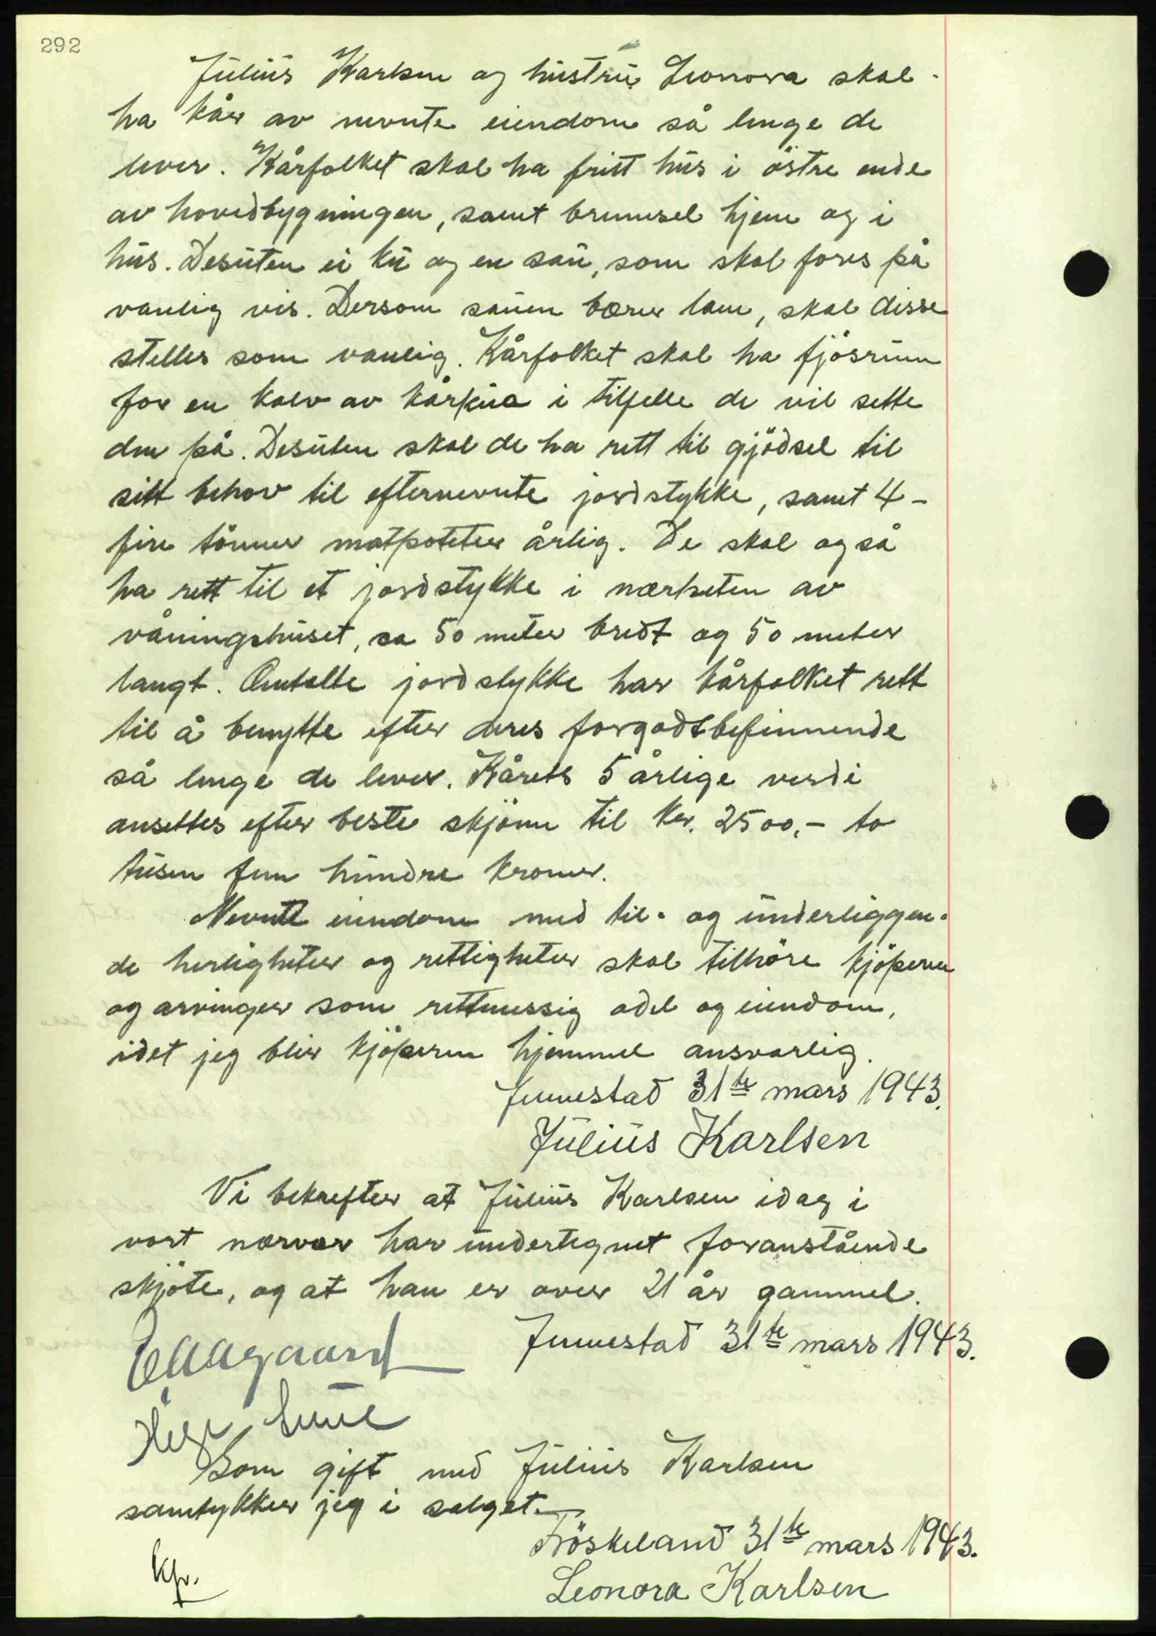 292
Julius Karlsen og hustru Leonora skal
ha kår av nevnte eiendom så lenge de
lever. Kårfolket skal ha fritt hus i östre ende
av hovedbygningen, samt brennsel hjem og i
hus. Desuten ei ku og en sau, som skal fores på
vanlig vis. Dersom sauen bærer lam, skal disse
stelles som vanlig. Kårfolket skal ha fjösrum
for en kalv av kårkua i tilfelle de vil sette
den på. Desuten skal de ha rett til gjödsel til
sitt behov til efternevnte jordstykke, samt 4-
fire tönner matpoteter årlig. De skal også
ha rett til et jordstykke i nærheten av
våningshuset, ca 50 meter bredt og 50 meter
langt. Omtalte jordstykke har kårfolket rett
til å benytte efter deres forgodtbefinnende
så lenge de lever. Kårets 5 årlige verdi
ansettes efter beste skjönn til kr. 2500,- to
tusen fem hundre kroner.
Nevnte eiendom med til- og underliggen-
de herligheter og rettigheter skal tilhöre kjöperen
og arvinger som rettmessig odel og eiendom,
idet jeg blir kjöperen hjemmel ansvarlig.
Jennestad 31te mars 1943.
Julius Karlsen
Vi bekrefter at Julius Karlsen idag i
vort nærvær har undertegnet foranstående
skjöte, og at han er over 21 år gammel.
Jennestad 31te mars 1943.
Som gift med Julius Karlsen
samtykker jeg i salget.
Fröskeland 31te mars 1943.
Leonora Karlsen
kfr.